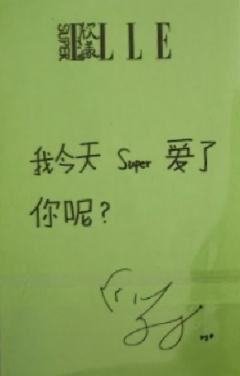 SUPER ELLE 欣漾
我今天 Super 爱了
你呢？